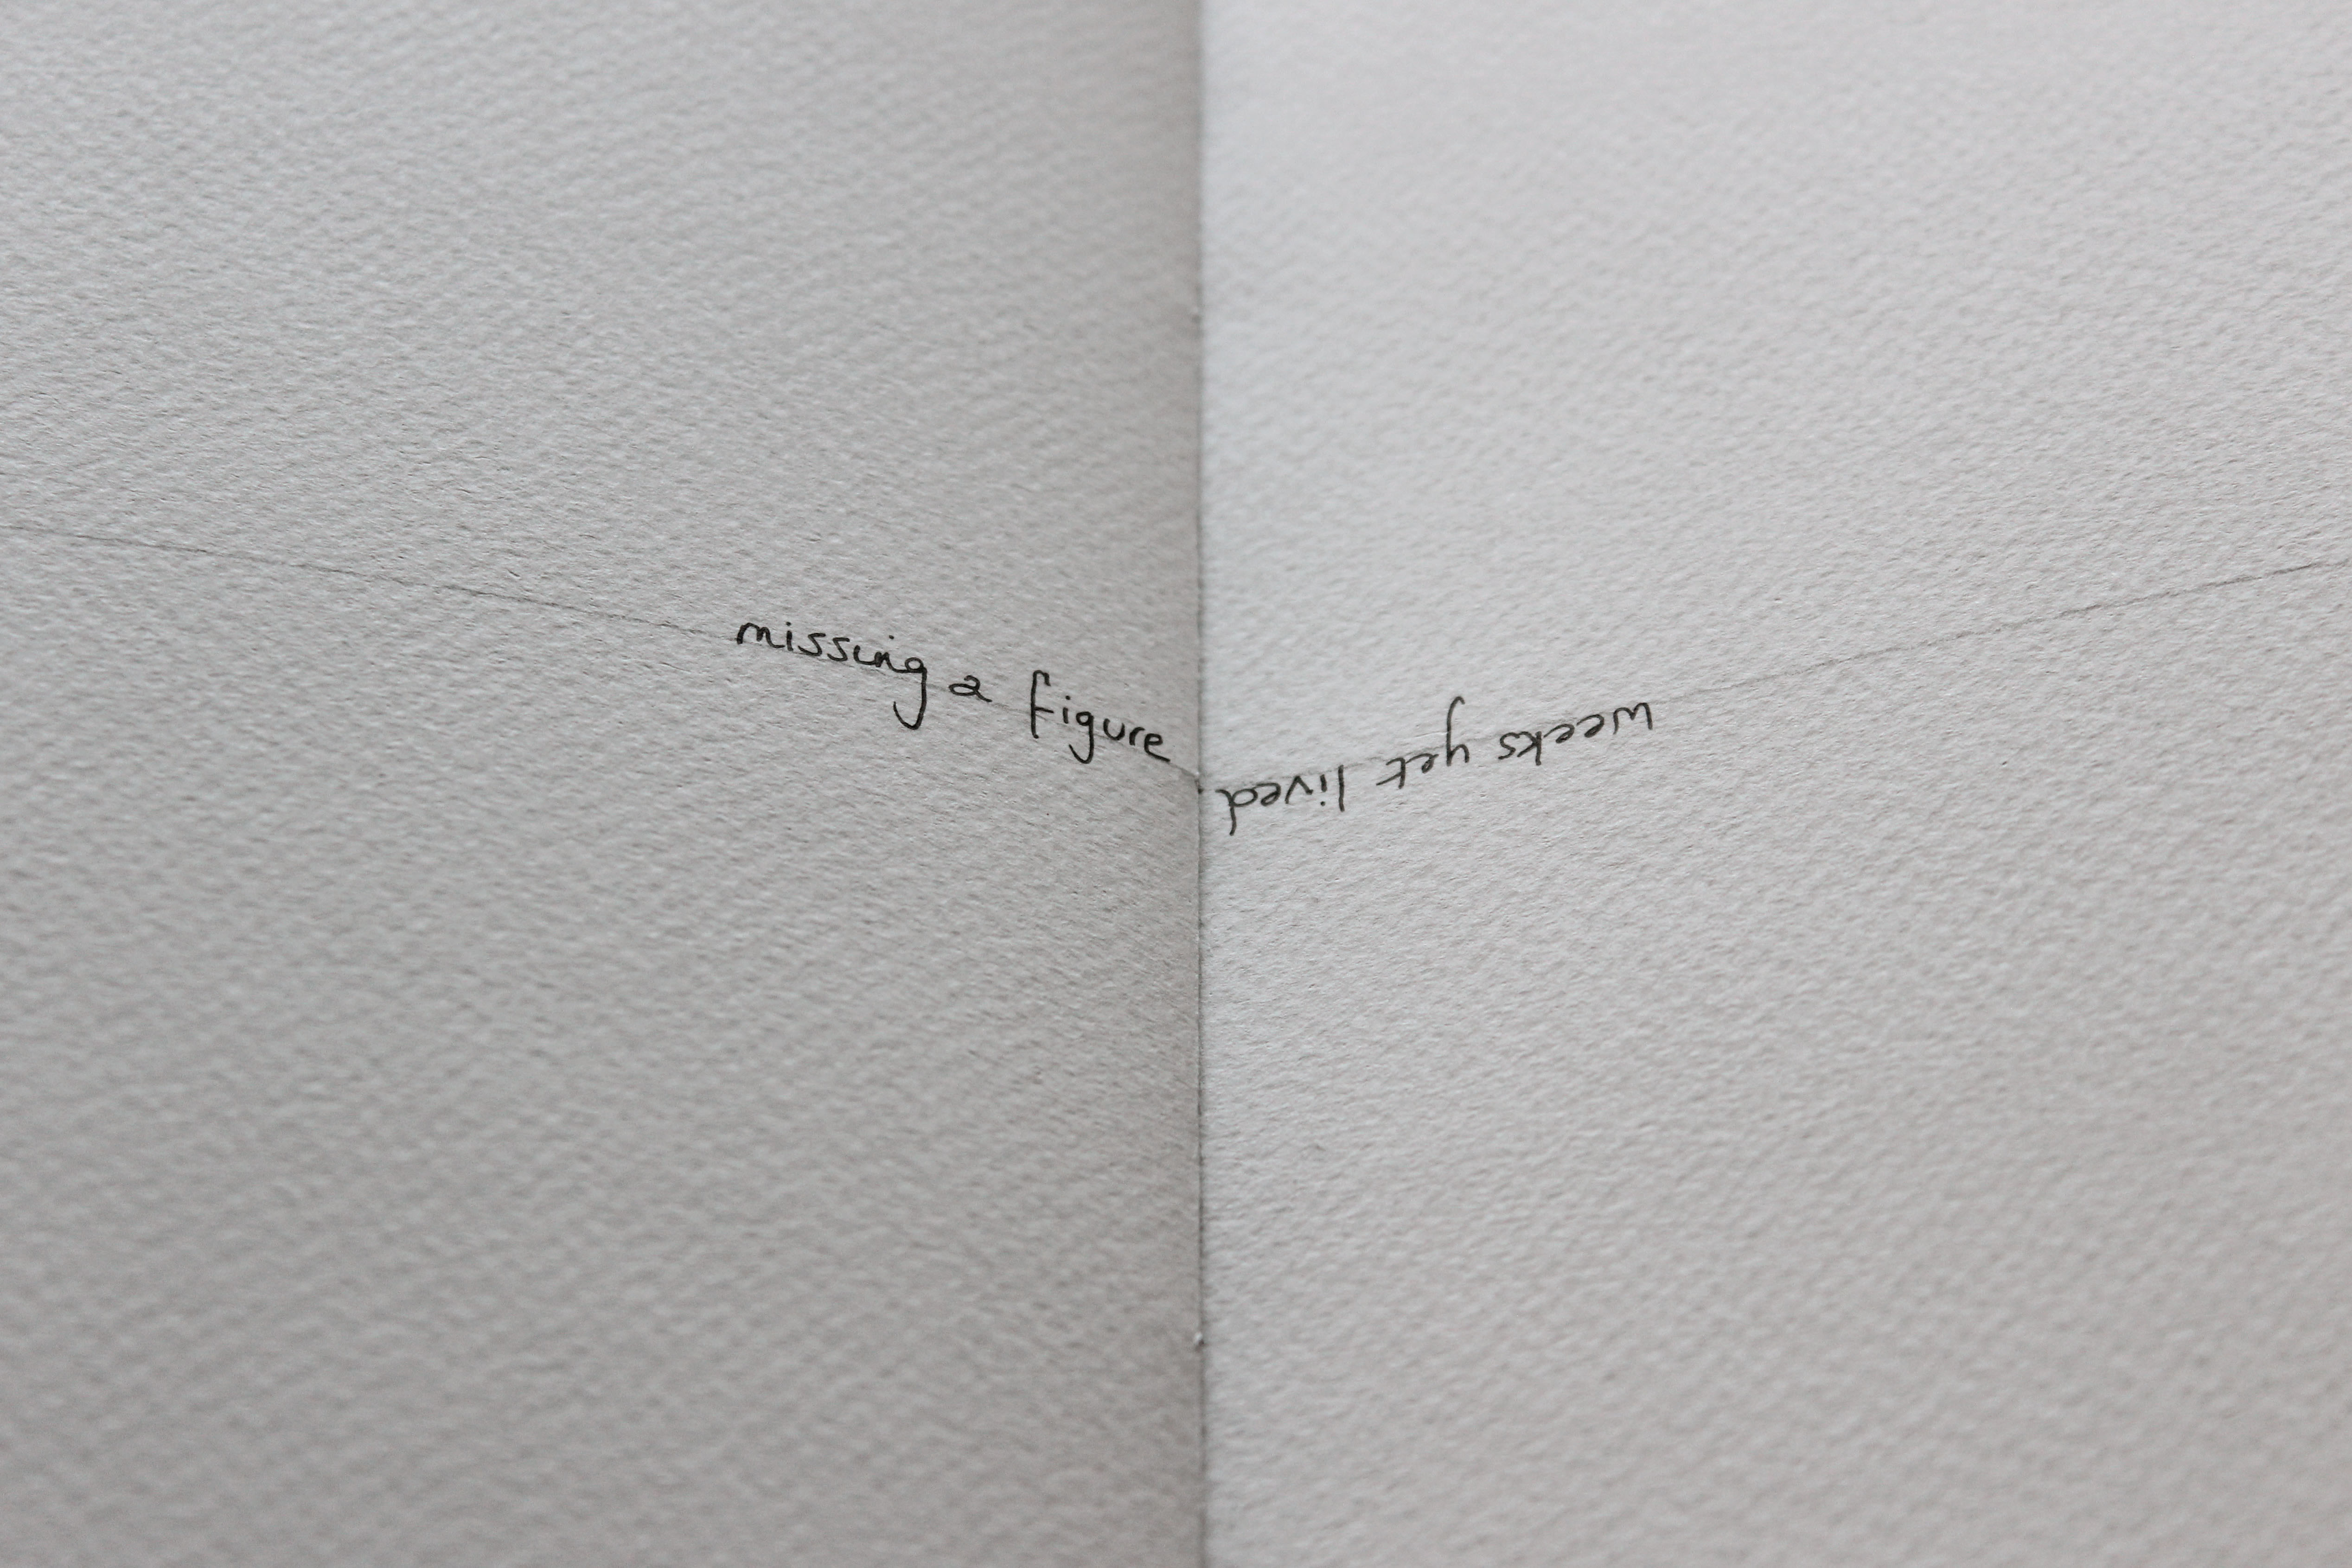 missing a figure
weeks yet lived